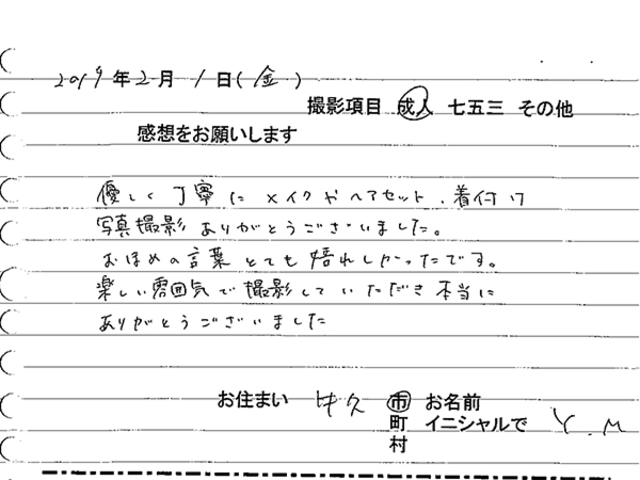 2019年2月1日(金)
撮影項目 成人 七五三 その他
感想をお願いします
優しく丁寧にメイクやヘアセット、着付け
写真撮影ありがとうございました。
おほめの言葉とても嬉れしかったです。
楽しい雰囲気で撮影していただき本当に
ありがとうございました
お住まい 牛久 市 お名前
町 イニシャルで Y.M
村